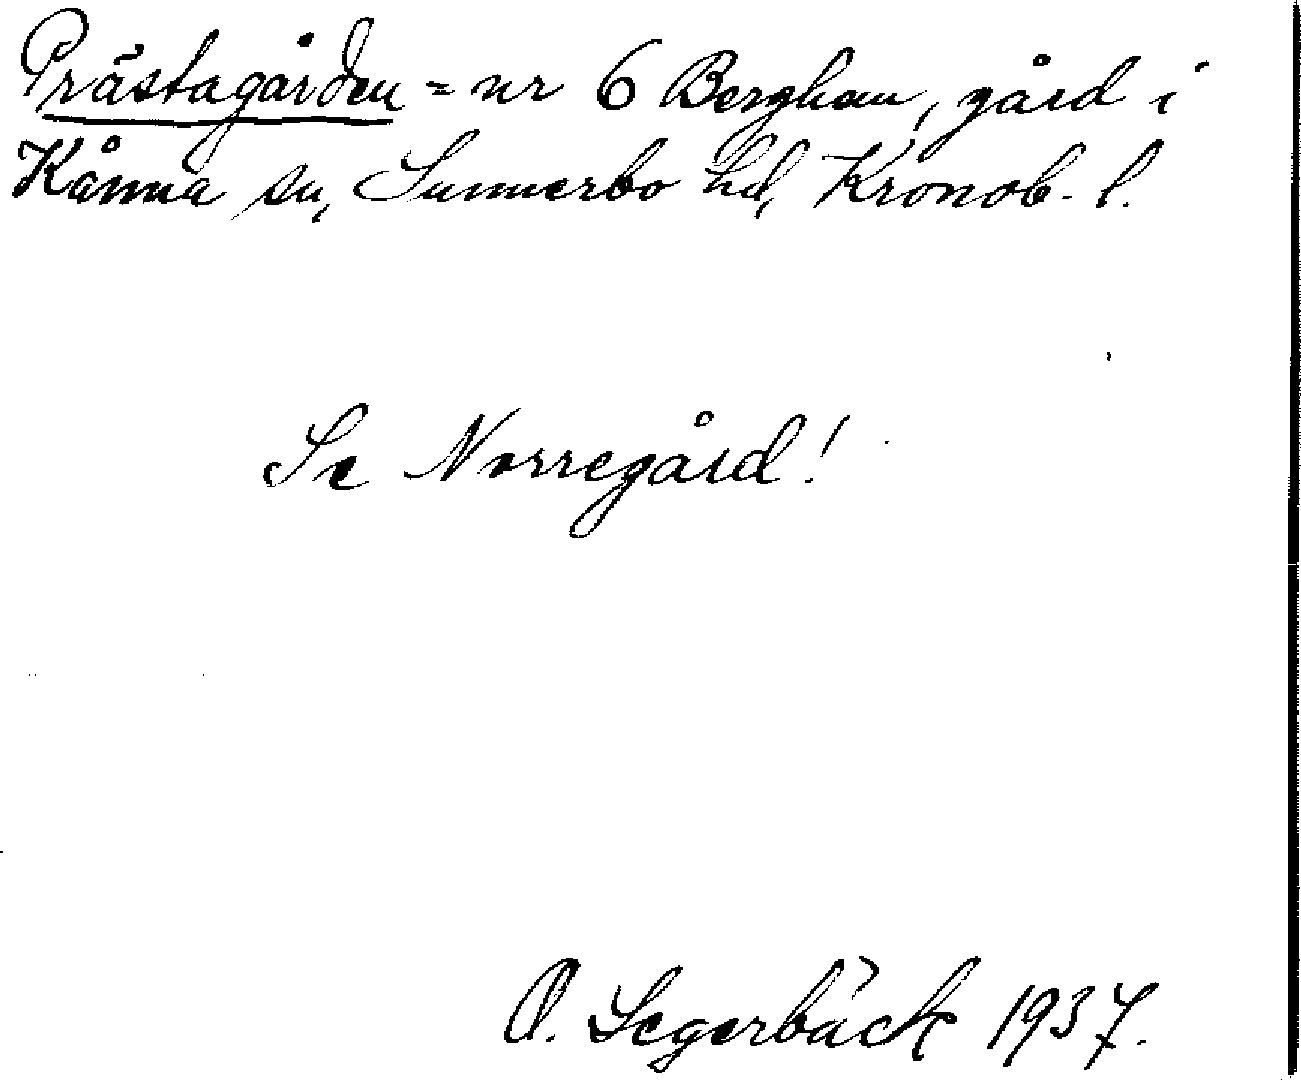 Prästagården = nr 6 Bergham, gård i
Kånna sn, Sunnerbo hd, Kronob. l.
Se Norregård!
O. Segerbäck 1937.